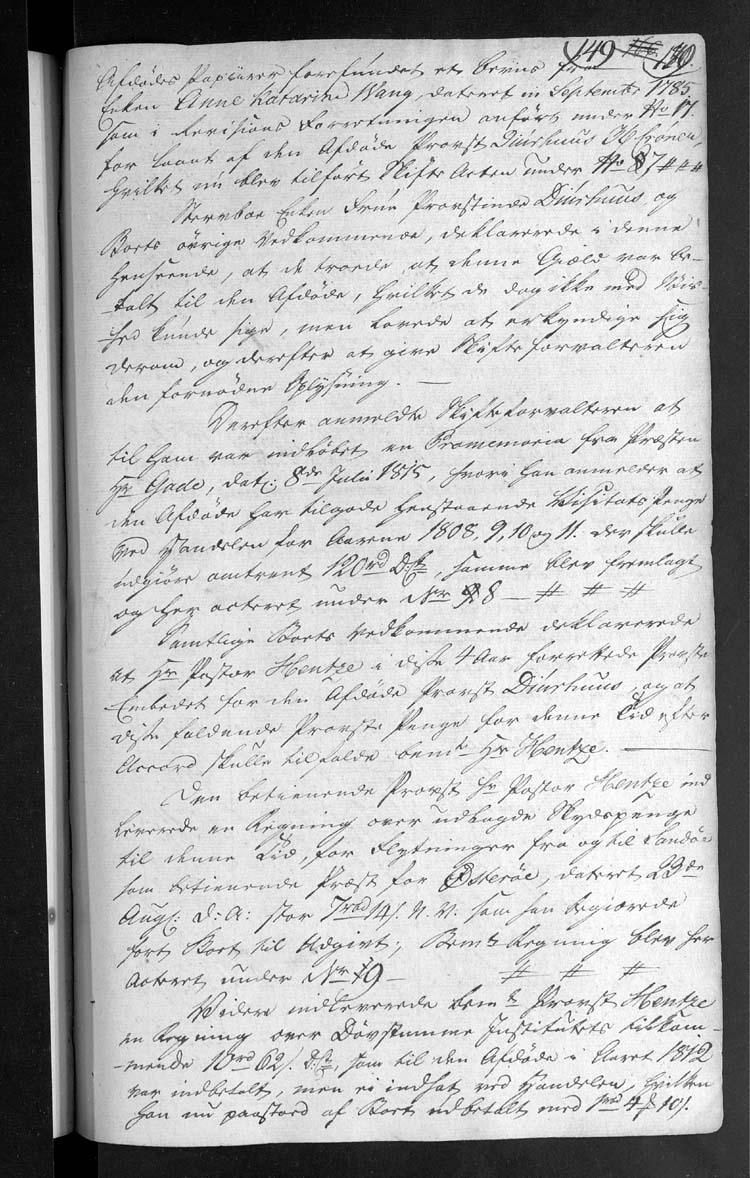 149 140.
Afdødes Papiirer forefundet et beviis fra
Enken Anne Katarine Wang, dateret in Septembr 1785
som i Revisions Forretningen anført under No 17.
for laant af den Afdøde Provst Diurhuus Kroner,
hvilket nu blev tilført Skifte Acten under No 7 ###
Stervboe Enken Frue Provstinde Diurhuus, og
Boets øvrige Vedkommende, deklarerede i denne
Henseende, at de troede, at denne Gield var be-
-talt til den Afdøde, hvilket de dog ikke med Vis-
-hed kunde sige, men lovede at erkyndige sig
derom, og derefter at give Skifteforvalteren
den fornødne Oplysning. —
Derefter anmeldte Skifteforvalteren at
til ham var indløbet en Promemoria fra Præsten
Hr Gade, dat: 8de Julii 1815, hvori han anmelder at
den Afdøde har tilgode henstaaende Visitats Penge
ved Handelen for Aarene 1808, 9, 10 og 11. der skulle
udgiøre omtrent 120rd D:C:, samme blev fremlagt
og her acteret under Nr 8 — # # #
Samtlige Boets Vedkommende deklarerede
at Hr Pastor Hentze i disse 4 Aar forrettede Provste
Embedet for den Afdøde Provst Diurhuus, og at
disse faldende Provste Penge for denne Tid efter
Accord skulle tilfalde bemte Hr Hentze. —
Den betienende Provst Hr Pastor Hentze ind
leverede en Regning over udlagde Skydspenge
til denne Tid, for Flytninger fra og til Sandøe
som betienende Præst for Østerøe, dateret 23de
Augs: d: A: stor 7rbd 14s. N. V: som han begiærede
ført Boet til Udgivt; Bemte Regning blev her
Acteret under Nr 9 — # # #
Videre indleverede bemte Provst Hentze
en Regning over Døvstumme Institutets tilkom-
-mende 10rd 62s. D:C:, som til den Afdøde i Aaret 1812
var indbetalt, men ei indsat ved Handelen, hvilken
han nu paastod af Boet udbetalt med 1rbd 4 10s.